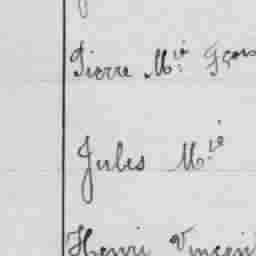 Pierre M^ie Fçois
Jules M^ie
Henri Vincent